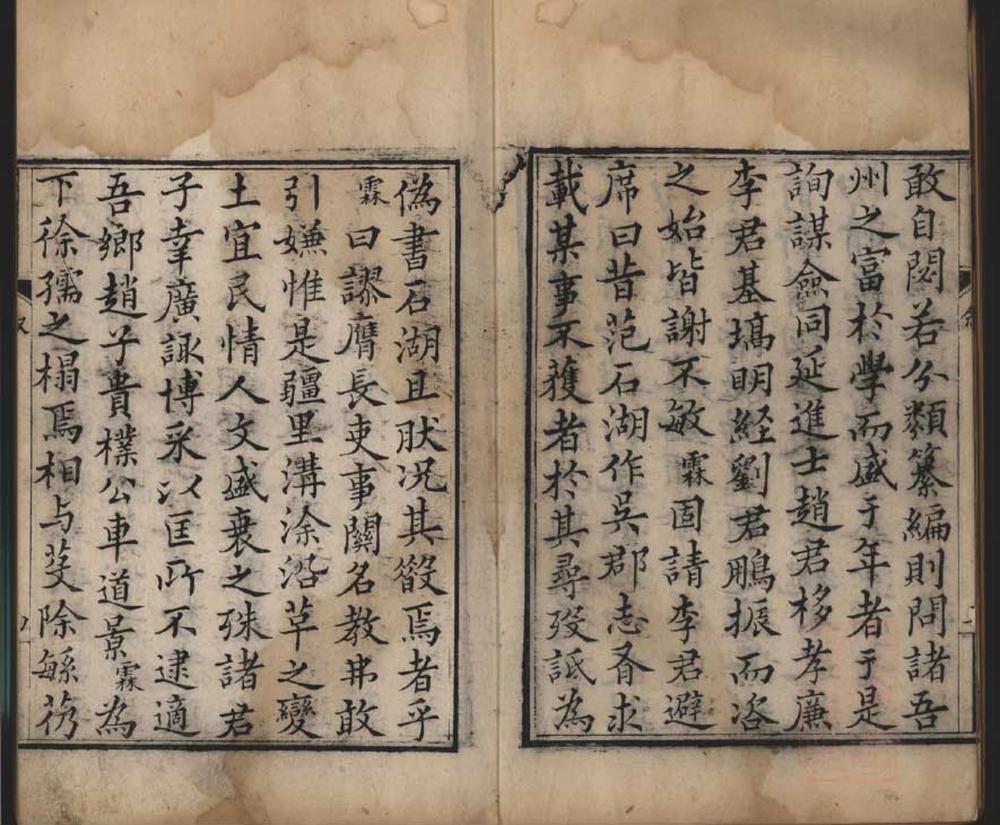 敢自閟若分類纂編則問諸吾
州之富於學而盛于年者于是
詢謀僉同延進士趙君移孝廉
李君基塙明経劉君鵬振而咨
之始皆謝不敏霖固請李君避
席曰昔范石湖作吳郡志有求
載某事不獲者於其尋歿詆為
偽書石湖且肰况其骰焉者乎
霖曰謬膺長吏事關名教弗敢
引嫌惟是疆里溝涂沿革之變
土宜民情人文盛衰之殊諸君
子幸廣諏博采以匡所不逮適
吾鄉趙子貴樸公車道景霖為
下徐孺之榻焉相与芟除緐艿